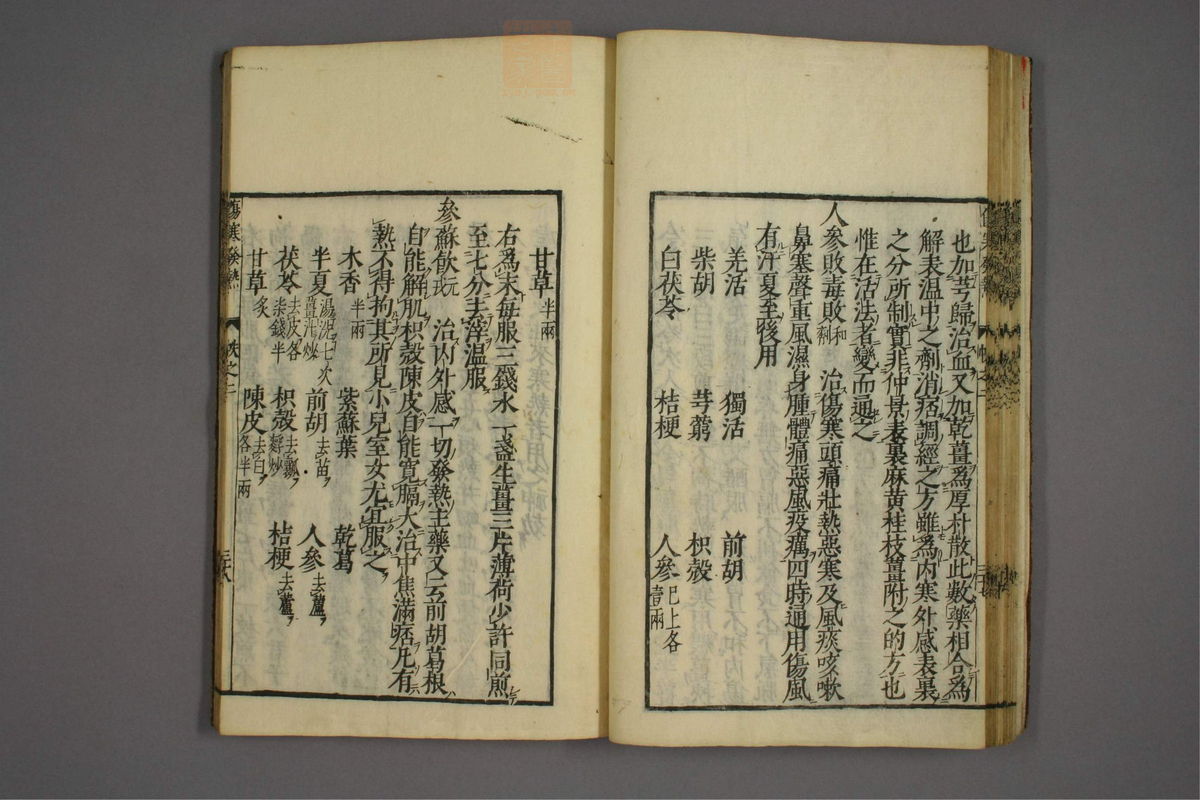 也加芎歸治血又加乾薑爲厚朴散此數藥相合爲
解表温中之劑消痞調經之方雖爲内寒外感表裏
之分所制實非仲景表裏麻黄桂枝薑附之的方也
惟在活法者變而通之
人參敗毒散和劑 治傷寒頭痛壯熱惡寒及風痰咳嗽
鼻塞聲重風濕身腫體痛惡風疫癘四時通用傷風
有汗夏至後用
羌活 獨活 前胡
柴胡 芎藭 枳殻
白茯苓 桔梗 人參已上各壹兩
甘草半兩
右爲末毎服三錢水一盞生薑三片薄荷少許同煎
至七分去滓温服
參蘇飲 治内外感一切發熱主藥又云前胡葛根
自能解肌枳殻陳皮自能寛膈大治中焦滿痞凢有
熱不得拘其所見小兒室女尤宜服之
木香半兩 紫蘇葉 乾葛
半夏湯洗七次薑汁炒 前胡去苗 人參去蘆
茯苓去皮各柒錢半 枳殻去瓤麸炒 桔梗去蘆
甘草炙 陳皮去白各半兩
傷寒發熱 帙之二